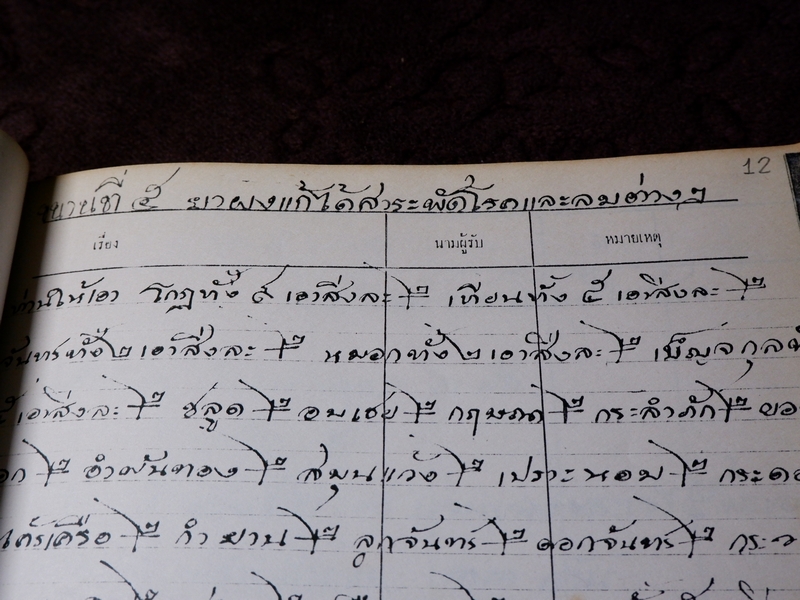 12
ขนานที่ ๕ ยาผงแก้ได้สาระพัดโรคและลมต่างๆ
เรื่อง นามผู้รับ หมายเหตุ
ท่านให้เอา โกฏทั้ง ๙ เอาสิ่งละ ๒ เทียนทั้ง ๕ เอาสิ่งละ ๒
จันทร์ทั้ง ๒ เอาสิ่งละ ๒ หมอกทั้ง ๒ เอาสิ่งละ ๒ เบ็ญจกูลทั้
๕ เอาสิ่งละ ๒ ชลูด ๒ อบเชย ๒ กฤษณา ๒ กระลำภัก ๒ ขอ
อก ๒ อำพันทอง ๒ สมุนแว้ง ๒ เปราะหอม ๒ กระดอ
ไคร้เครือ ๒ กำยาน ๒ ลูกจันทร์ ๒ ดอกจันทร์ ๒ กระว